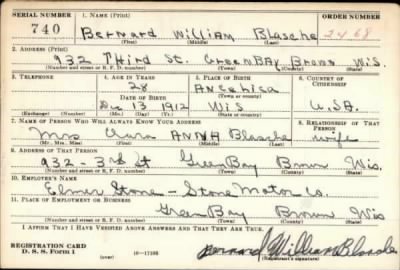 SERIAL NUMBER 1. NAME (Print) ORDER NUMBER
740 Bernard William Blasche 2468
(First) (Middle) (Last)
2. ADDRESS (Print)
932 Third St. Green Bay Brown Wis.
(Number and street or R. F. D. number) (Town) (County) (State)
3. TELEPHONE 4. AGE IN YEARS 5. PLACE OF BIRTH 6. COUNTRY OF CITIZENSHIP
28 Angelica
DATE OF BIRTH (Town or county)
Dec 13 1912 Wis U.S.A.
(Exchange) (Number) (Mo.) (Day) (Yr.) (State or country)
7. NAME OF PERSON WHO WILL ALWAYS KNOW YOUR ADDRESS 8. RELATIONSHIP OF THAT PERSON
Mrs Anna Blasche wife
(Mr. Mrs. Miss) (First) (Middle) (Last)
9. ADDRESS OF THAT PERSON
932 - 3rd St Green Bay Brown Wis.
(Number and street or R. F. D. number) (Town) (County) (State)
10. EMPLOYER'S NAME
Elmer Stone - Stone Motor Co.
11. PLACE OF EMPLOYMENT OR BUSINESS
Green Bay Brown Wis
(Number and street or R. F. D. number) (Town) (County) (State)
I AFFIRM THAT I HAVE VERIFIED ABOVE ANSWERS AND THAT THEY ARE TRUE.
REGISTRATION CARD
D. S. S. Form 1 (over) 16-17105 Bernard William Blasche
(Registrant's signature)